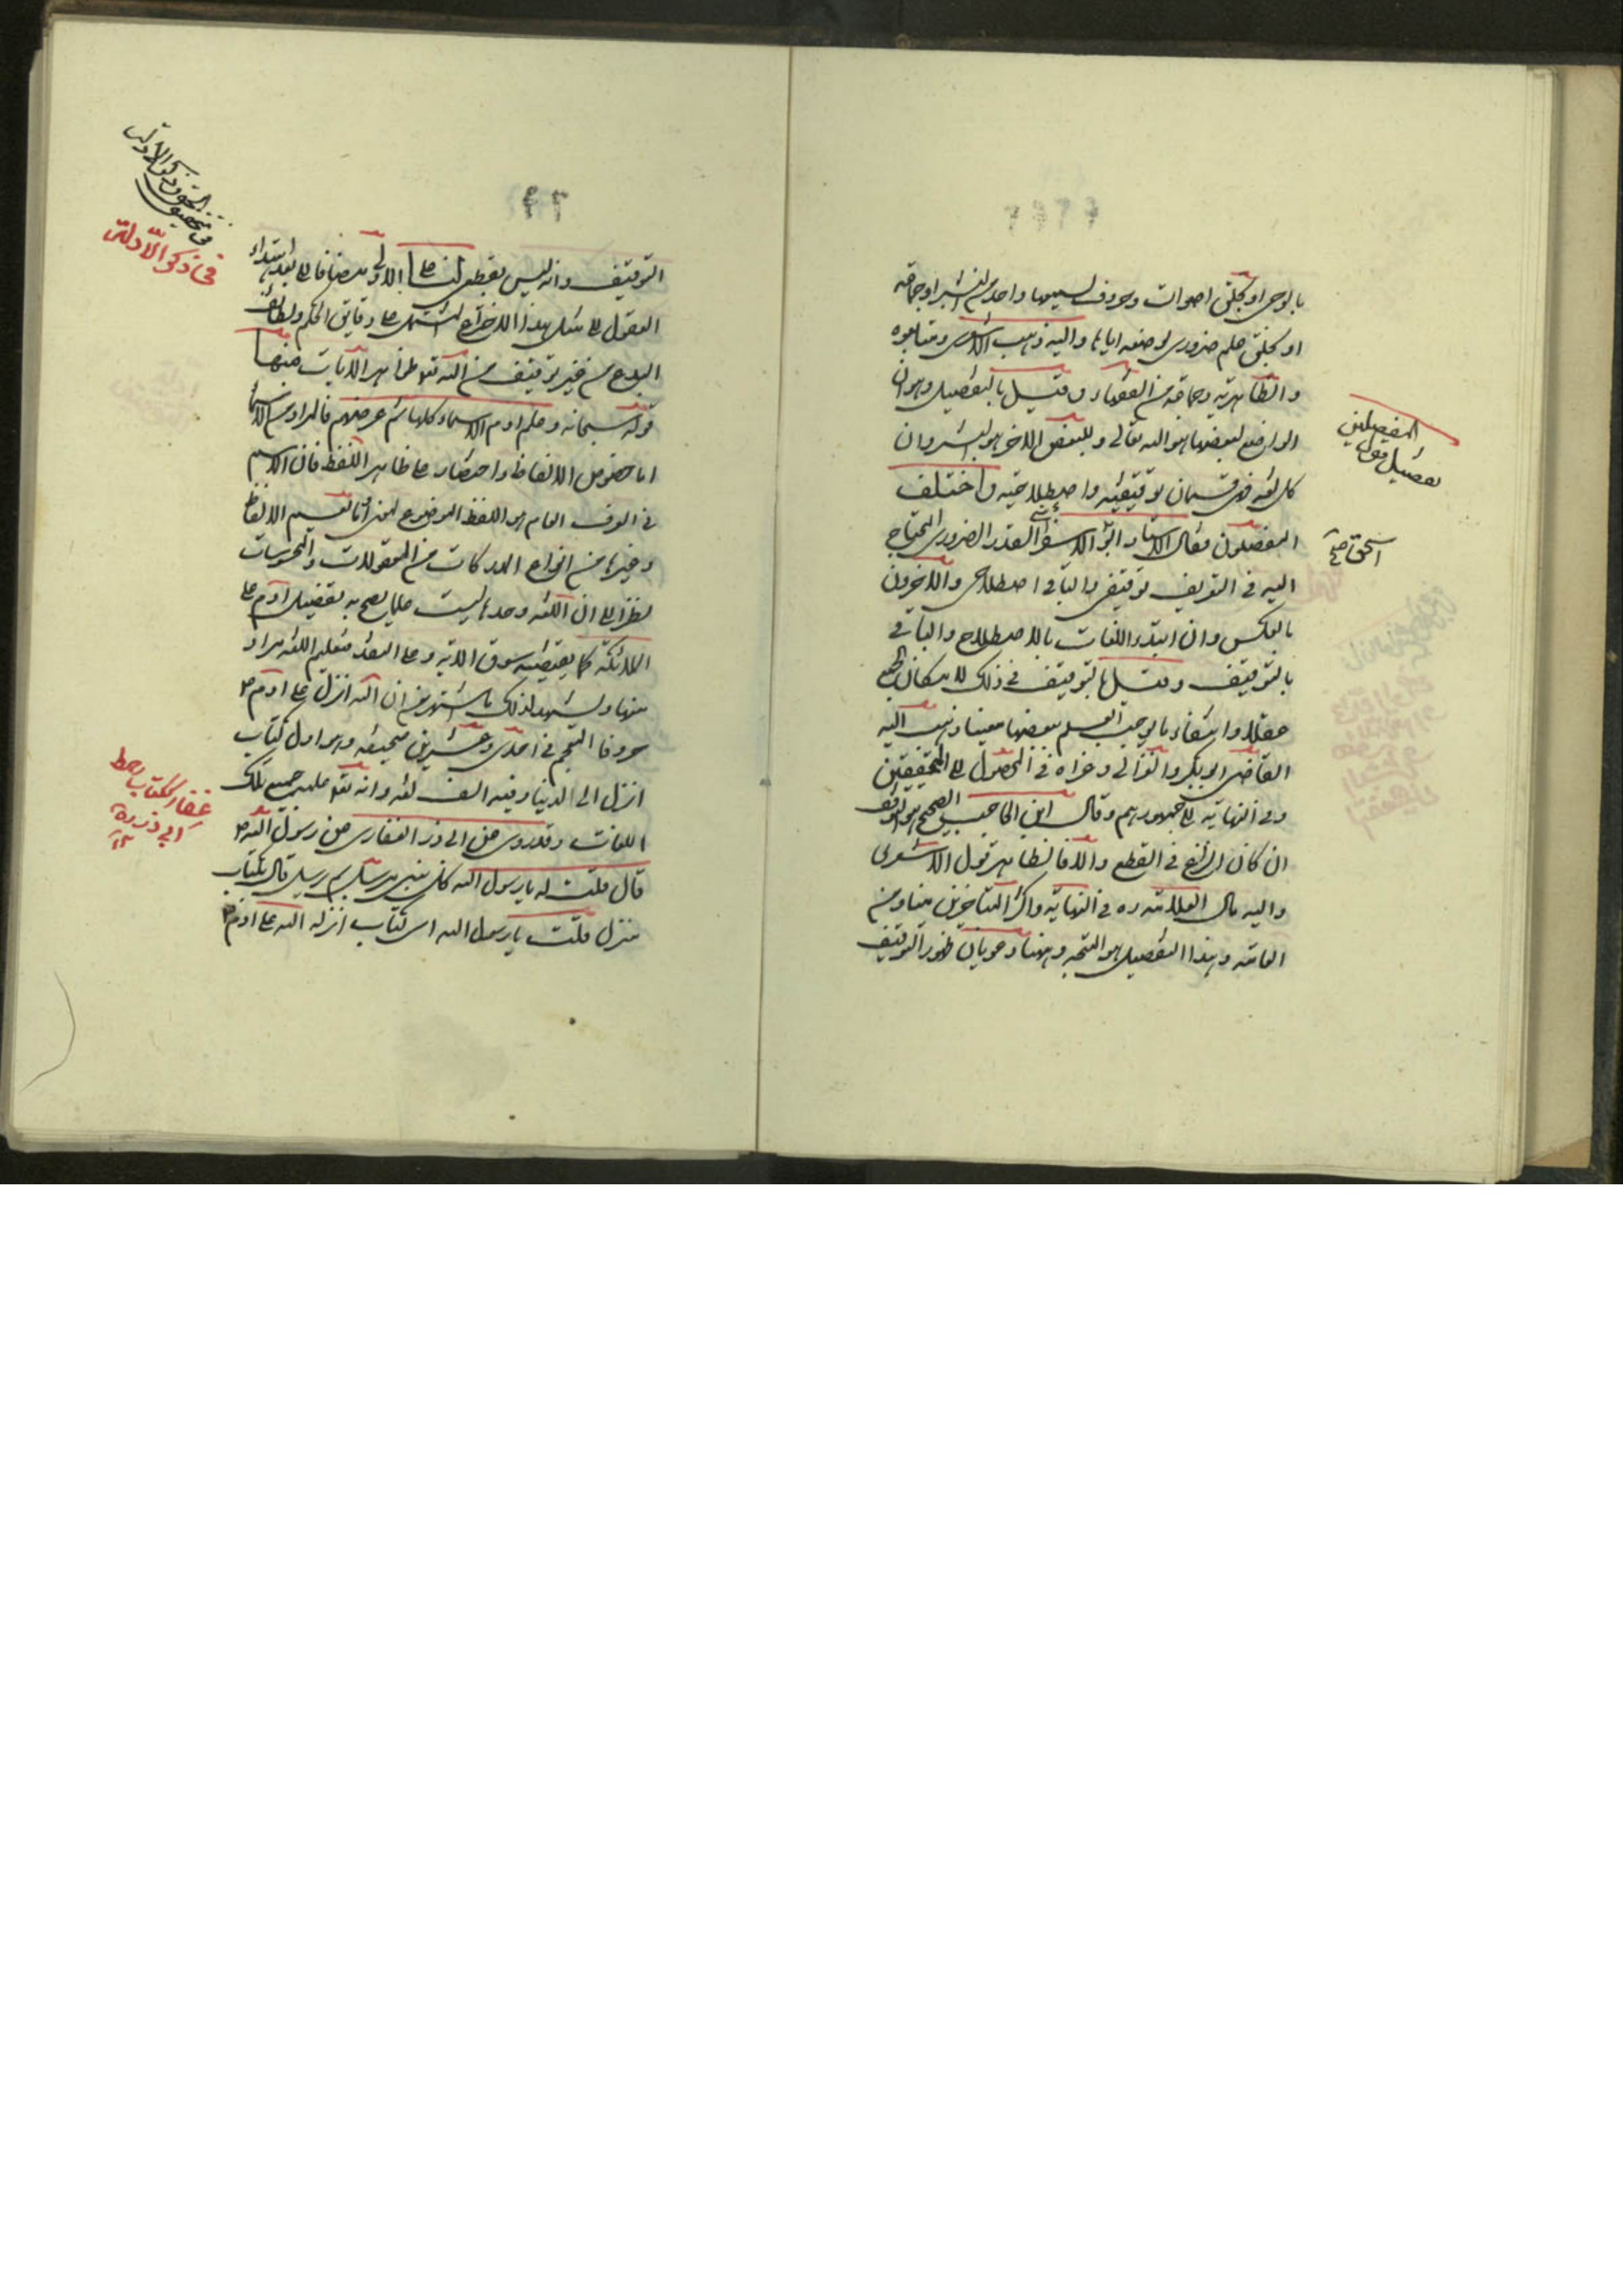 بالوحي او بخلق اصوات وحروف لسميعها واحد من البشر او جماعة
او بخلق علم ضروري بوضعه اياها واليه ذهب الاشعري ومتابعوه
والظاهرية وجماعة من الفقهاء وقيل بالتفصيل وهو ان
الواضع لبعضها هو الله تعالى وللبعض الاخر هو البشر وان
كل لغة فهي قسمان توقيفية واصطلاحية واختلف
المفصلون فقال الاستاد ابو الاسفرائني القدر الضروري المحتاج
اليه في التعريف توقيفي والباقي اصطلاحي والاخرون
بالعكس وان ابتداء اللغات بالاصطلاح والباقي
بالتوقيف وقيل بالتوقف في ذلك لامكان الجميع
عقلا وانتفاء ما يوجب العلم ببعضها معينا وذهب اليه
القاضي ابو بكر والغزالي وعزاه في المحصول الى المحققين
وفي النهاية الى جمهورهم وقال ابن الحاجب الصحيح هو الوقف
ان كان النزاع في القطع والا فالظاهر قول الاشعري
واليه مال العلامة ره في النهاية واكثر المتاخرين منا ومن
العامة وهذا التفصيل هو المتجه وههنا دعويان ظهور التوقيف
المفصلين
تفصيل قول
اسحق صح
٩٣
التوقيف وانه ليس بقطعي لنا على الاولى مضافا الى بعد اهتداء
العقول الى مثل هذا الاختراع المشتمل على دقايق الحكم ولطائف
البدع من غير توقيف من الله تع ظواهر الايات منها
قوله سبحانه وعلم ادم الاسماء كلها ثم عرضهم فالمراد من الاسماء
اما خصوص الالفاظ واحتصار على ظاهر اللفظ فان الاسم
في العرف العام هو اللفظ الموضوع لمعنى واما تعميم الالفاظ
وغيرها من انواع المدركات من المعقولات والمحسوسات
نظرا الى ان اللغة وحدها ليست علما يصح به تفضيل ادم على
الملائكة كما يقتضيه سوق الاية وعلى التقدير فتعليم اللغة مراد
منها ويشهد لذلك ما اشتهر من ان الله انزل على ادم ع
حروف المعجم في احدى وعشرين صحيفة وهو اول كتاب
انزل الى الدنيا وفيه الف لغة وانه تع علمه جميع تلك
اللغات وقد روي عن ابي ذر الغفاري عن رسول الله ص
قال قلت له يا رسول الله كل نبي مرسل بم يرسل قال بكتاب
منزل قلت يا رسول الله اي كتاب انزله الله على ادم ع
في ذكر الادلة
ابي ذر رة